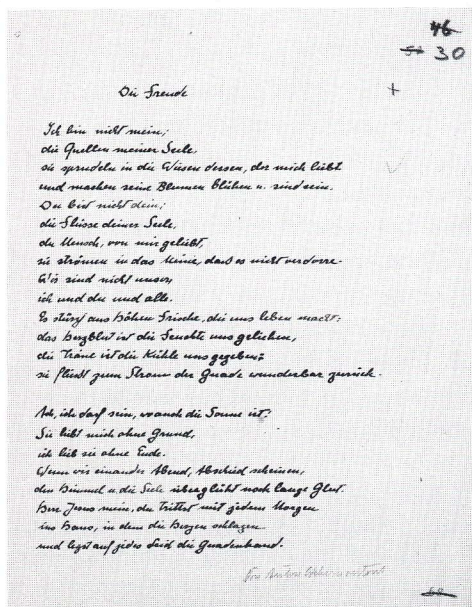 46
52 30
+
Die Freude
Ich bin nicht mein;
die Quellen meiner Seele,
sie sprudeln in die Wiesen dessen, der mich liebt
und machen seine Blumen blühen u. sind sein.
Du bist nicht dein;
die Flüsse deiner Seele,
du Mensch, von mir geliebt,
sie strömen in das Meine, dass es nicht verdorre.
Wir sind nicht unser,
ich und du und alle.
Es stürzt aus Höhen Frische, die uns leben macht:
das Herzblut ist die Feuchte uns geliehen,
die Träne ist die Kühle uns gegeben:
sie fliesst zum Strom der Gnade wunderbar zurück.
Ach, ich darf sein, wo auch die Sonne ist.
Sie liebt mich ohne Grund,
ich lieb sie ohne Ende.
Wenn wir einander Abend, Abschied scheinen,
den Himmel u. die Seele überglüht noch lange Glut.
Herr Jesus mein, du trittst mit jedem Morgen
ins Haus, in dem die Herzen schlagen
und legst auf jedes Leid die Gnadenhand.
Von Anton Webern vertont
68